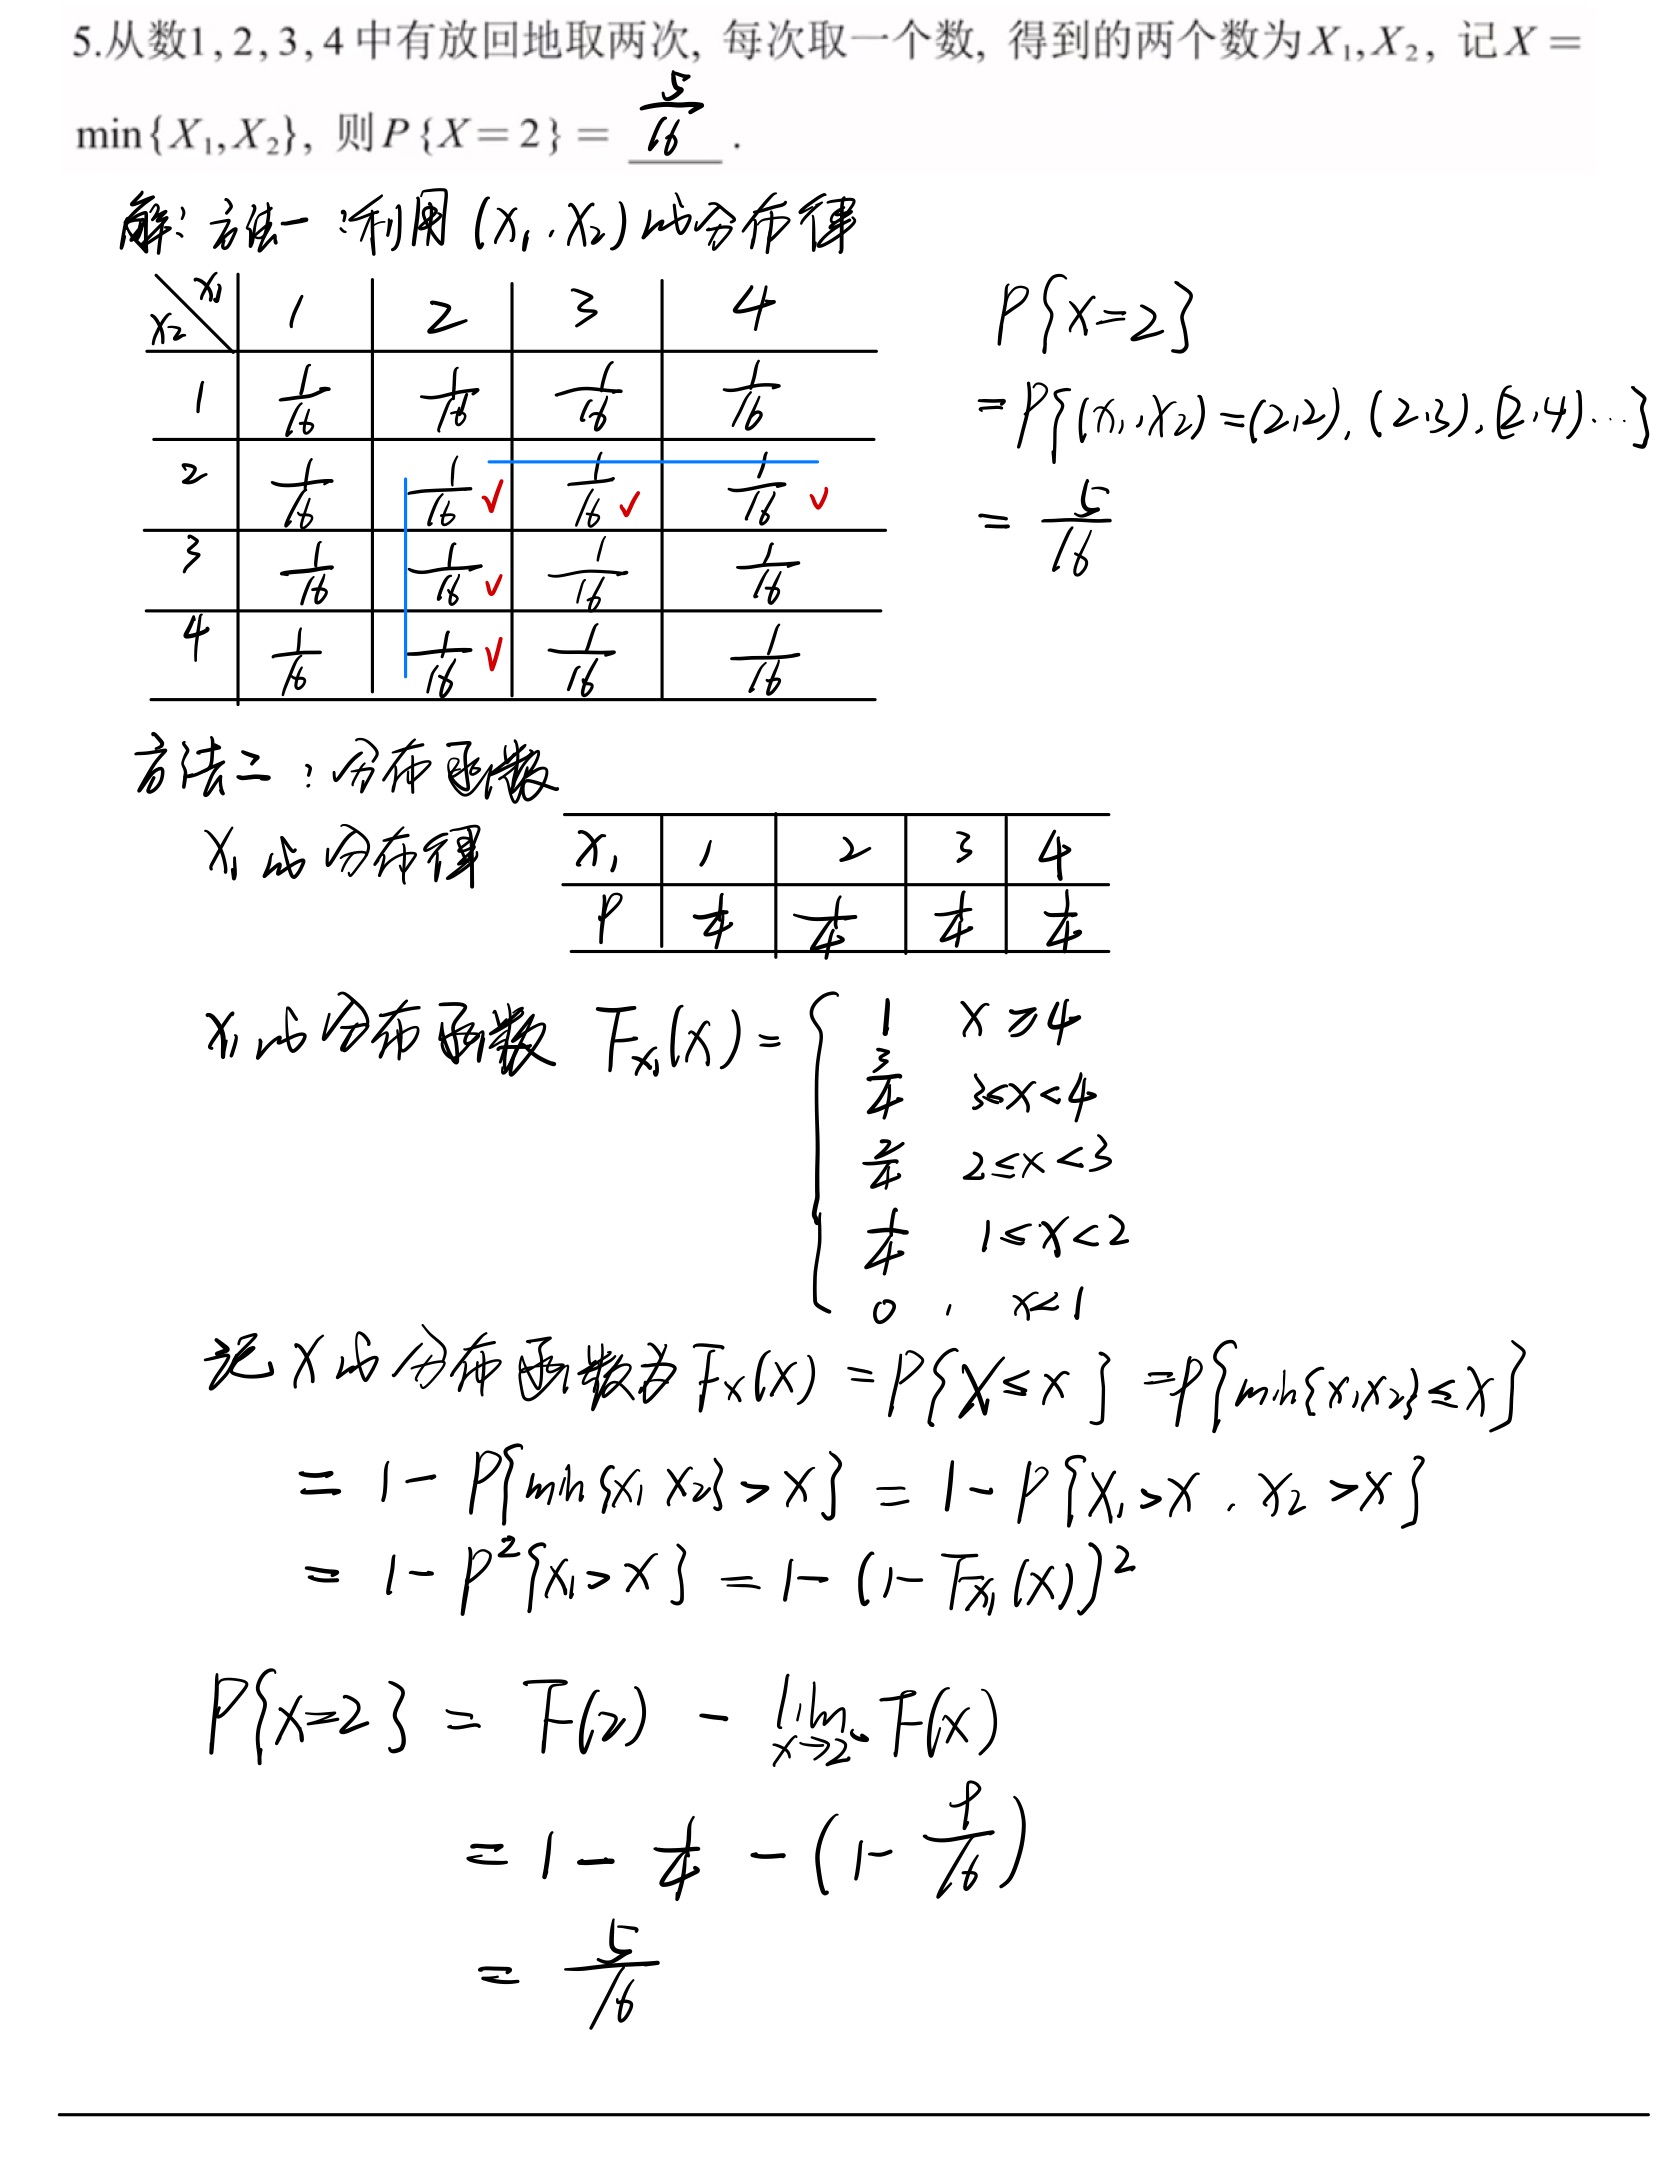 5.从数1,2,3,4中有放回地取两次, 每次取一个数, 得到的两个数为X₁,X₂, 记X =
min{X₁,X₂}, 则P{X=2} = 5/16 .
解: 方法一: 利用(X₁,X₂)的分布律
X₂\X₁ 1 2 3 4
1 1/16 1/16 1/16 1/16
2 1/16 1/16 ✓ 1/16 ✓ 1/16 ✓
3 1/16 1/16 ✓ 1/16 1/16
4 1/16 1/16 ✓ 1/16 1/16
P{X=2}
= P{(X₁,X₂)=(2,2),(2,3),(2,4)…}
= 5/16
方法二: 分布函数
X₁的分布律
X₁ 1 2 3 4
P 1/4 1/4 1/4 1/4
X₁的分布函数 F_X₁(x) = {
1 x≥4
3/4 3≤x<4
2/4 2≤x<3
1/4 1≤x<2
0, x<1
记X的分布函数为F_X(x) = P{X≤x} = P{min{X₁,X₂}≤x}
= 1-P{min{X₁,X₂}>x} = 1-P{X₁>x, X₂>x}
= 1-P²{X₁>x} = 1-(1-F_X₁(x))²
P{X=2} = F(2) - lim x→2⁻ F(x)
= 1 - 1/4 - (1 - 9/16)
= 5/16